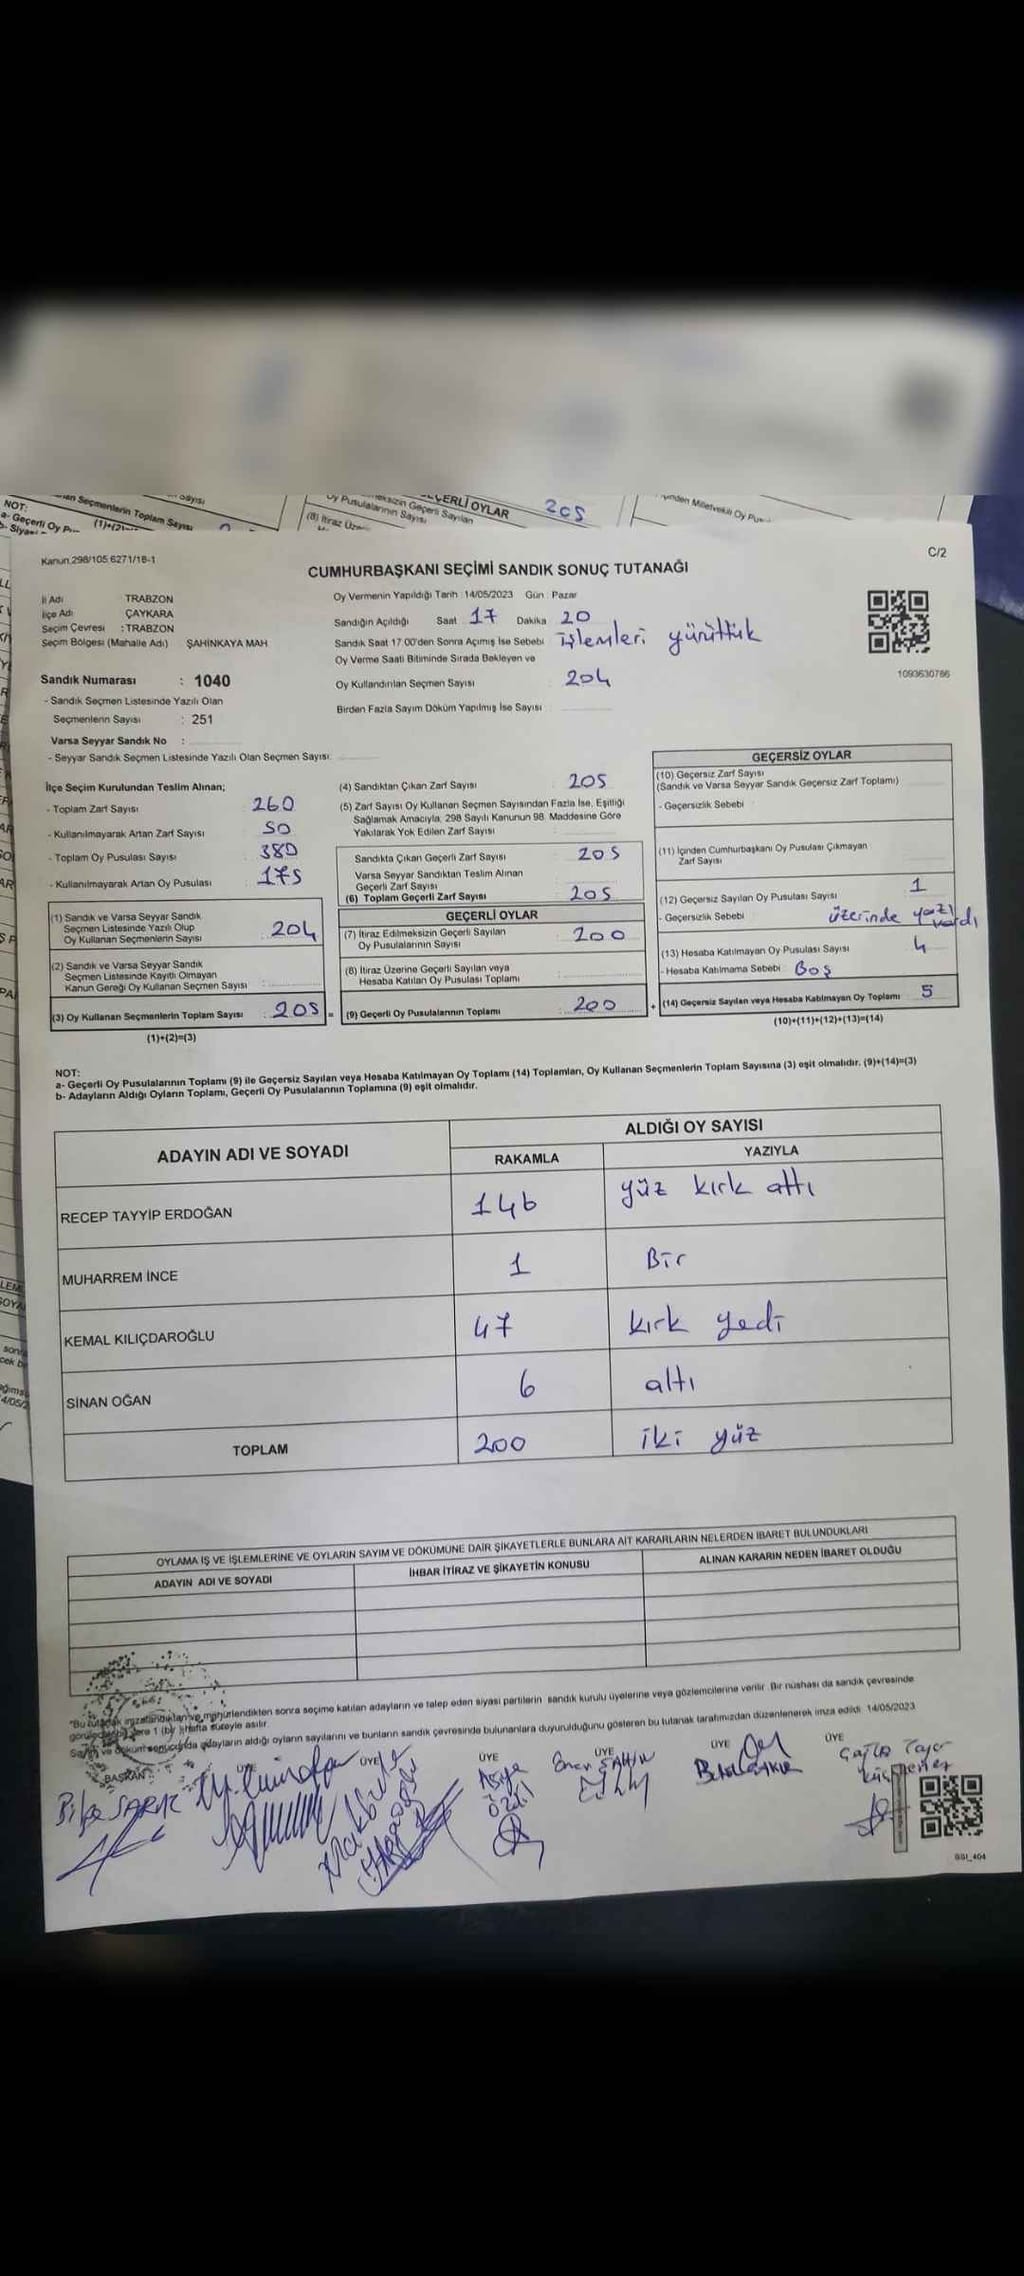 NOT:
a- Geçerli Oy P...
b- Siyasi
Seçmenlerin Toplam Sayısı
Sayısı
(1)+(2)
Oy Pusulalarının Sayısı
(8) İtiraz
GEÇERLİ OYLAR
205
Kanun.298/105,6271/18-1
C/2
CUMHURBAŞKANI SEÇİMİ SANDIK SONUÇ TUTANAĞI
İl Adı TRABZON
İlçe Adı ÇAYKARA
Seçim Çevresi : TRABZON
Seçim Bölgesi (Mahalle Adı) ŞAHİNKAYA MAH
Oy Vermenin Yapıldığı Tarih :14/05/2023 Gün : Pazar
Sandığın Açıldığı Saat 17 Dakika 20
Sandık Saat 17.00'den Sonra Açımış İse Sebebi işlemleri yürüttük
Oy Verme Saati Bitiminde Sırada Bekleyen ve
Oy Kullandırılan Seçmen Sayısı : 204
Birden Fazla Sayım Döküm Yapılmış İse Sayısı :
1093630766
Sandık Numarası : 1040
- Sandık Seçmen Listesinde Yazılı Olan
Seçmenlerin Sayısı : 251
Varsa Seyyar Sandık No :
- Seyyar Sandık Seçmen Listesinde Yazılı Olan Seçmen Sayısı:
İlçe Seçim Kurulundan Teslim Alınan;
- Toplam Zarf Sayısı 260
- Kullanılmayarak Artan Zarf Sayısı 50
- Toplam Oy Pusulası Sayısı 380
- Kullanılmayarak Artan Oy Pusulası 175
(1) Sandık ve Varsa Seyyar Sandık
Seçmen Listesinde Yazılı Olup
Oy Kullanan Seçmenlerin Sayısı : 204
(2) Sandık ve Varsa Seyyar Sandık
Seçmen Listesinde Kayıtlı Olmayan
Kanun Gereği Oy Kullanan Seçmen Sayısı :
(3) Oy Kullanan Seçmenlerin Toplam Sayısı : 205 =
(1)+(2)=(3)
(4) Sandıktan Çıkan Zarf Sayısı 205
(5) Zarf Sayısı Oy Kullanan Seçmen Sayısından Fazla İse, Eşitliği
Sağlamak Amacıyla, 298 Sayılı Kanunun 98. Maddesine Göre
Yakılarak Yok Edilen Zarf Sayısı
Sandıkta Çıkan Geçerli Zarf Sayısı 205
Varsa Seyyar Sandıktan Teslim Alınan
Geçerli Zarf Sayısı
(6) Toplam Geçerli Zarf Sayısı 205
GEÇERLİ OYLAR
(7) İtiraz Edilmeksizin Geçerli Sayılan
Oy Pusulalarının Sayısı : 200
(8) İtiraz Üzerine Geçerli Sayılan veya
Hesaba Katılan Oy Pusulası Toplamı
(9) Geçerli Oy Pusulalarının Toplamı : 200 +
GEÇERSİZ OYLAR
(10) Geçersiz Zarf Sayısı
(Sandık ve Varsa Seyyar Sandık Geçersiz Zarf Toplamı)
- Geçersizlik Sebebi
(11) İçinden Cumhurbaşkanı Oy Pusulası Çıkmayan
Zarf Sayısı
(12) Geçersiz Sayılan Oy Pusulası Sayısı 1
- Geçersizlik Sebebi üzerinde yazı vardı
(13) Hesaba Katılmayan Oy Pusulası Sayısı 4
- Hesaba Katılmama Sebebi : Boş
(14) Geçersiz Sayılan veya Hesaba Katılmayan Oy Toplamı 5
(10)+(11)+(12)+(13)=(14)
NOT:
a- Geçerli Oy Pusulalarının Toplamı (9) ile Geçersiz Sayılan veya Hesaba Katılmayan Oy Toplamı (14) Toplamları, Oy Kullanan Seçmenlerin Toplam Sayısına (3) eşit olmalıdır. (9)+(14)=(3)
b- Adayların Aldığı Oyların Toplamı, Geçerli Oy Pusulalarının Toplamına (9) eşit olmalıdır.
ADAYIN ADI VE SOYADI
ALDIĞI OY SAYISI
RAKAMLA YAZIYLA
RECEP TAYYİP ERDOĞAN 146 yüz kırk altı
MUHARREM İNCE 1 Bir
KEMAL KILIÇDAROĞLU 47 kırk yedi
SİNAN OĞAN 6 altı
TOPLAM 200 iki yüz
OYLAMA İŞ VE İŞLEMLERİNE VE OYLARIN SAYIM VE DÖKÜMÜNE DAİR ŞİKAYETLERLE BUNLARA AİT KARARLARIN NELERDEN İBARET BULUNDUKLARI
ADAYIN ADI VE SOYADI İHBAR İTİRAZ VE ŞİKAYETİN KONUSU ALINAN KARARIN NEDEN İBARET OLDUĞU
*Bu tutanak imzalandıktan ve mühürlendikten sonra seçime katılan adayların ve talep eden siyasi partilerin sandık kurulu üyelerine veya gözlemcilerine verilir. Bir nüshası da sandık çevresinde
görülecek bir yere 1 (bir) hafta süreyle asılır.
Sayım ve döküm sonucunda adayların aldığı oyların sayılarını ve bunların sandık çevresinde bulunanlara duyurulduğunu gösteren bu tutanak tarafımızdan düzenlenerek imza edildi. 14/05/2023
BAŞKAN ÜYE ÜYE ÜYE ÜYE ÜYE ÜYE
Asiye
ŞAHİN
Çağla
SSI_404